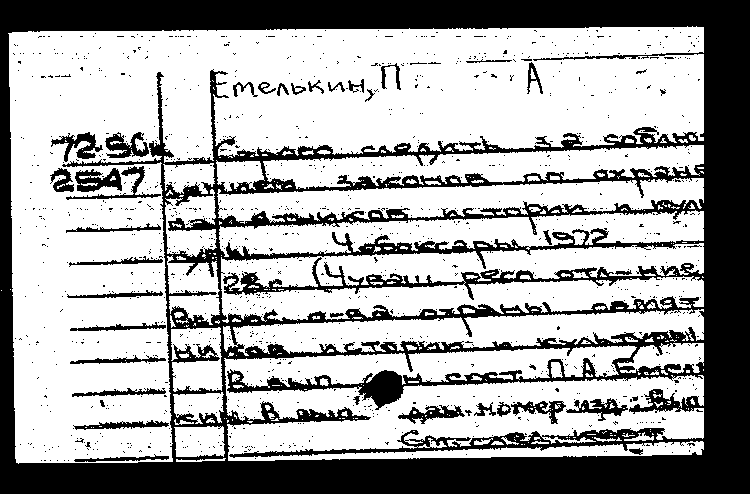 Емелькин, П А
72-50к Строго следить за соблю-
2547 дением законов по охране
памятников истории и куль
туры. Чебоксары, 1972.
28с (Чуваш респ отд-ние
Всерос. о-ва охраны памят
ников истории и культуры)
В вып. сост.: П А Емель
кин. В вып. даы. номер изд.: Вып
См. след. карт.